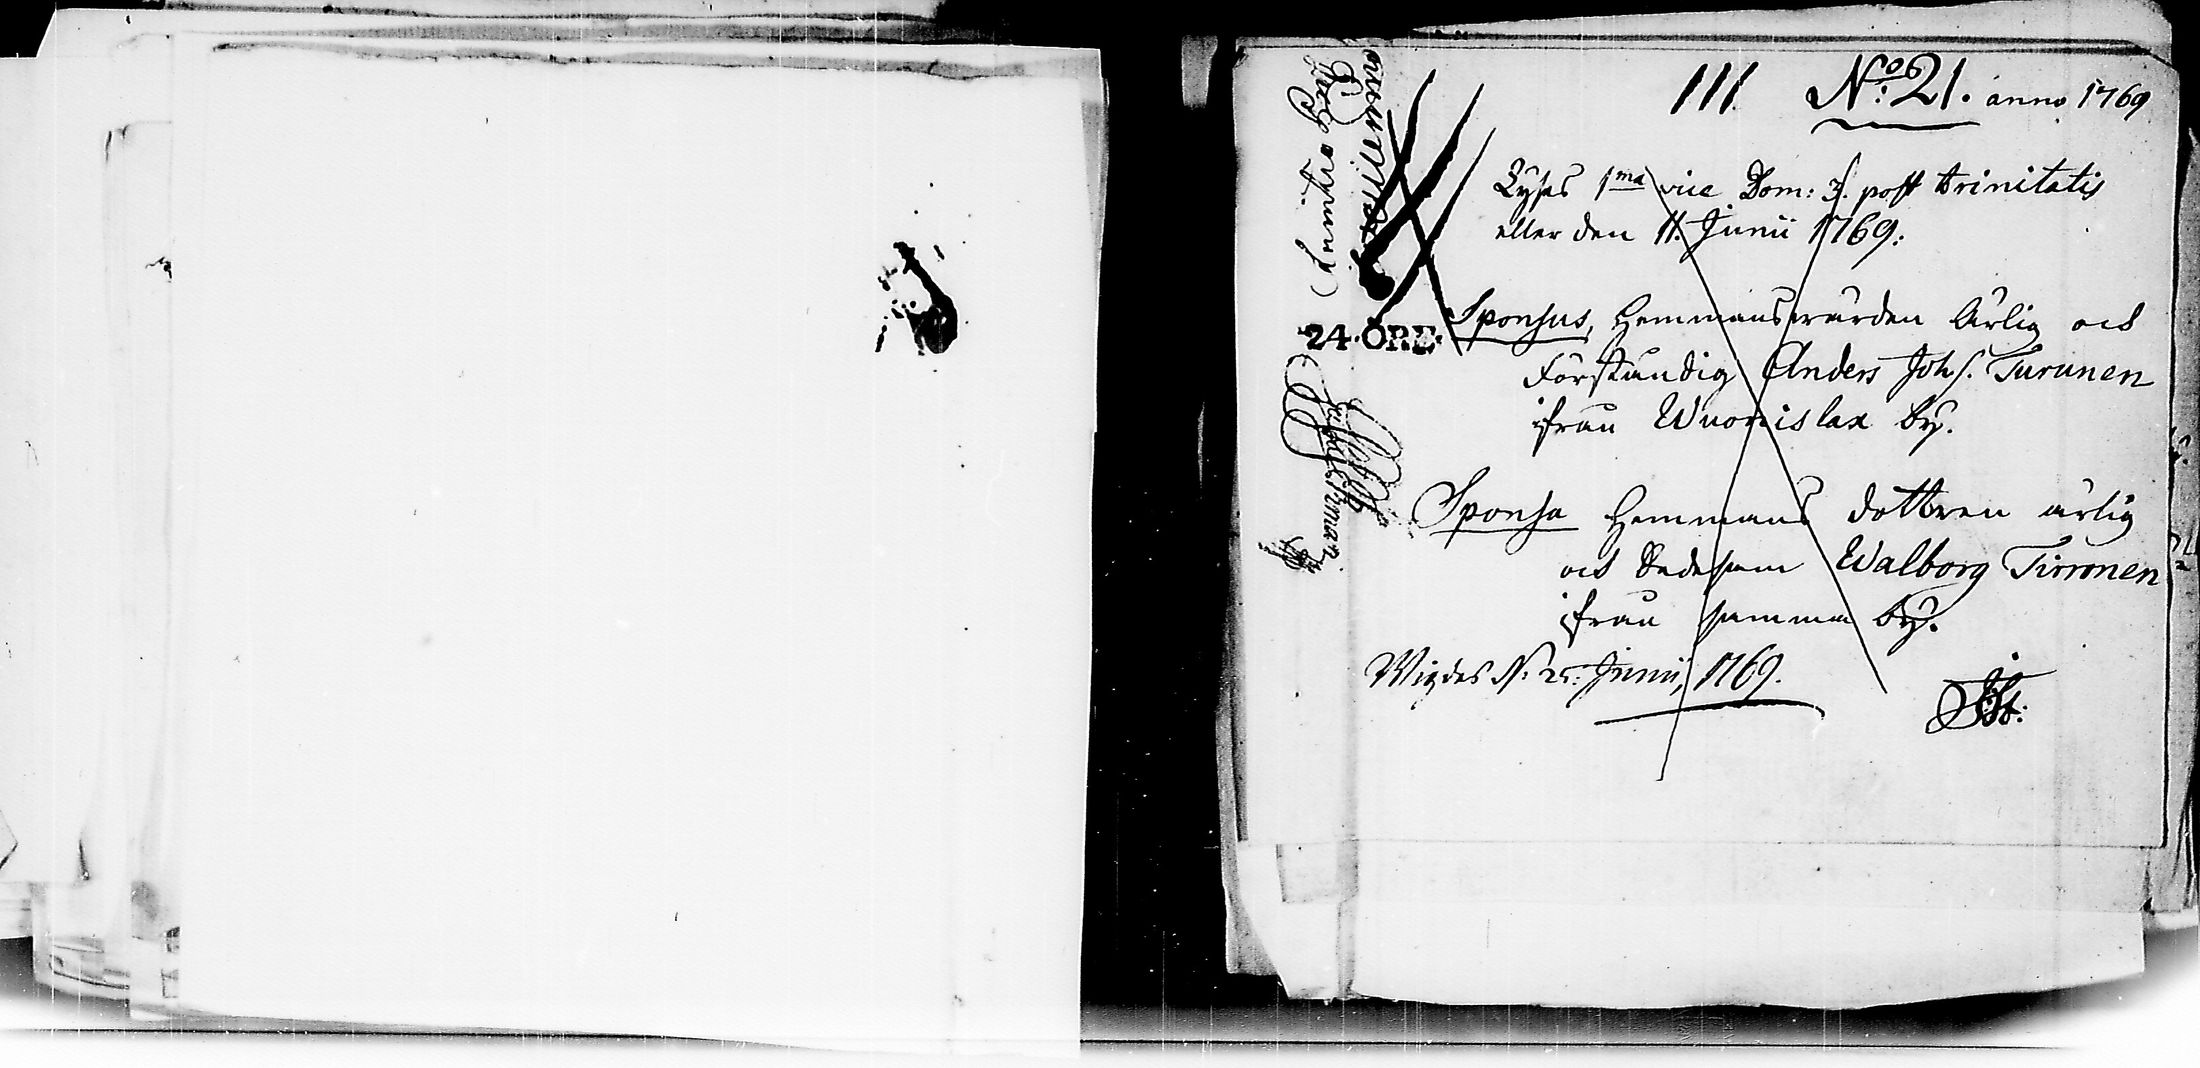 111. No: 21. anno 1769
Lyses 1ma vice Dom: 3. post trinitatis
eller den 11. Junii 1769:
24·ÖRE·
Sponsus, Hemmans wärden Ärlig och
Förståndig Anders Joh s. Turunen
ifrån Wuonislax by.
Sponsa Hemmans dottren ärlig
och Dedesam Walborg Tirronen
ifrån samma by.
Wigdes d. 25. Junii, 1769.